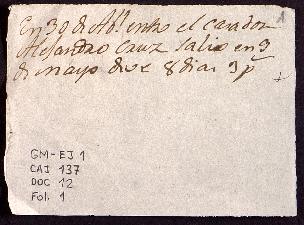 1
En 30 de Abl. entro el cavador
Alejandro Cruz Salio en 9
de mayo 8 dias
GM-EJ 1
CAJ 137
DOC 12
Fol. 1